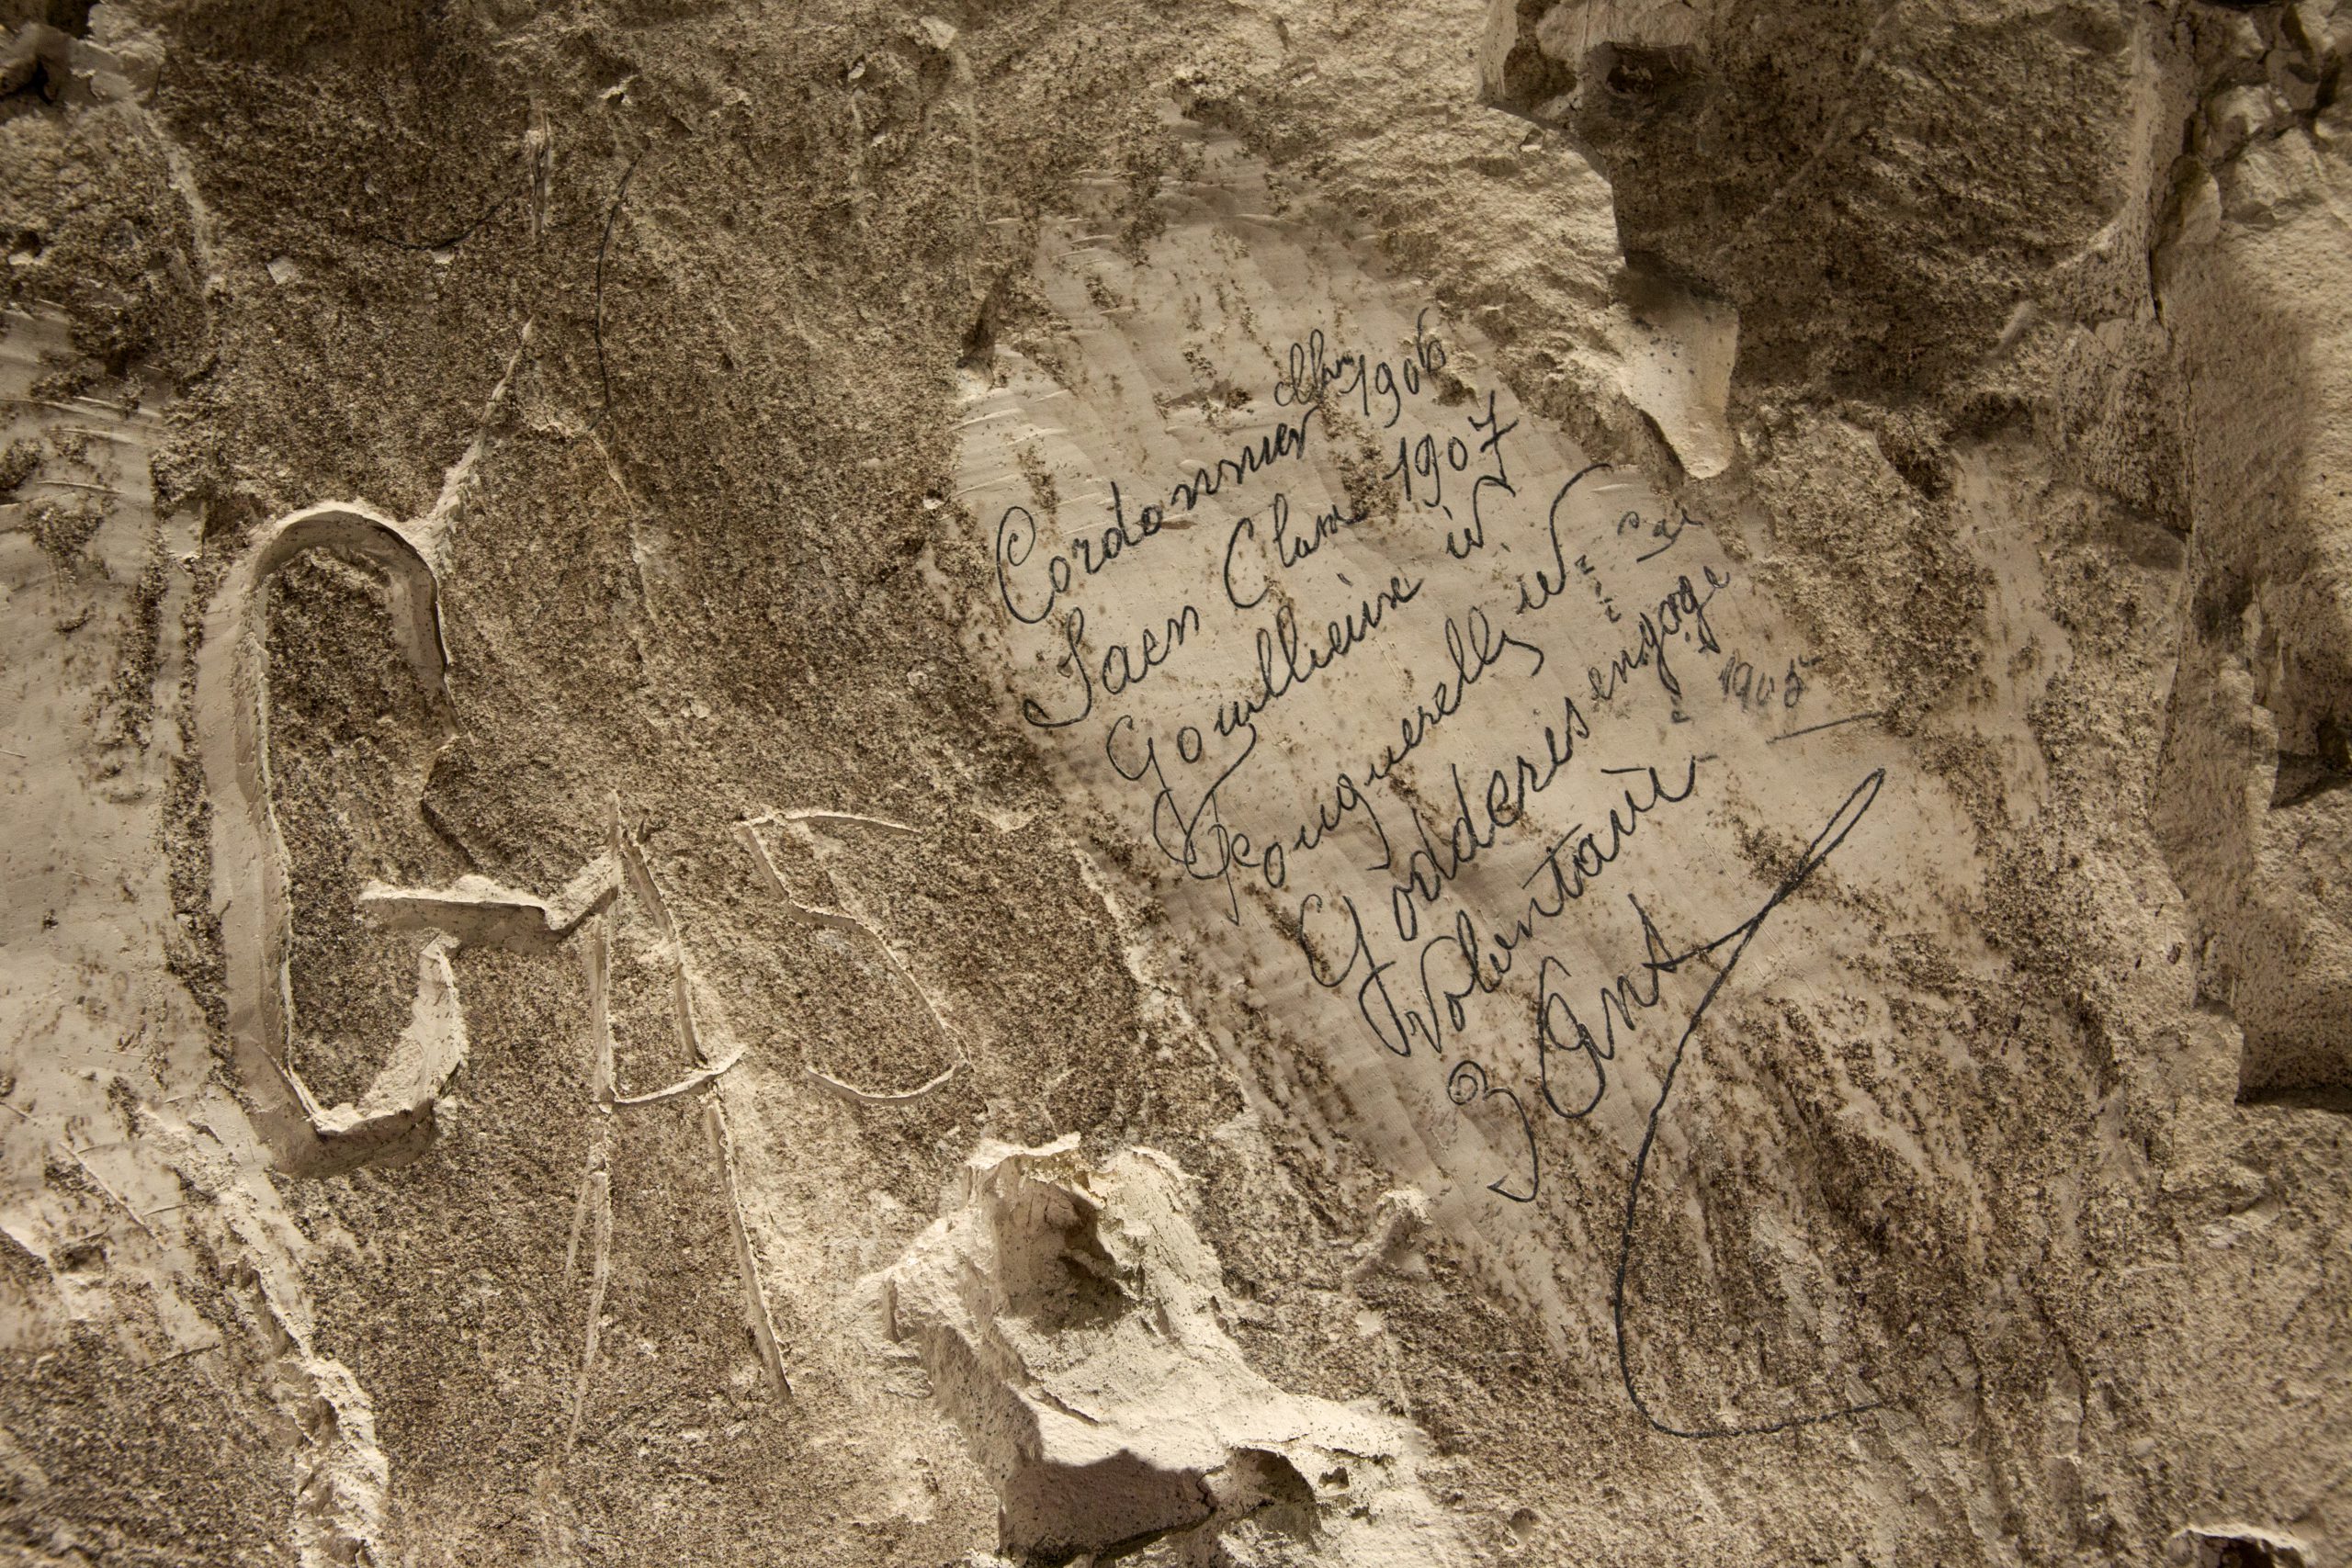 GAS
Cordonnier 1906
Saen Clase 1907
Goullieux id
Fouquerelly id
Godderis engagé
Volontaire 1905
3 Ans